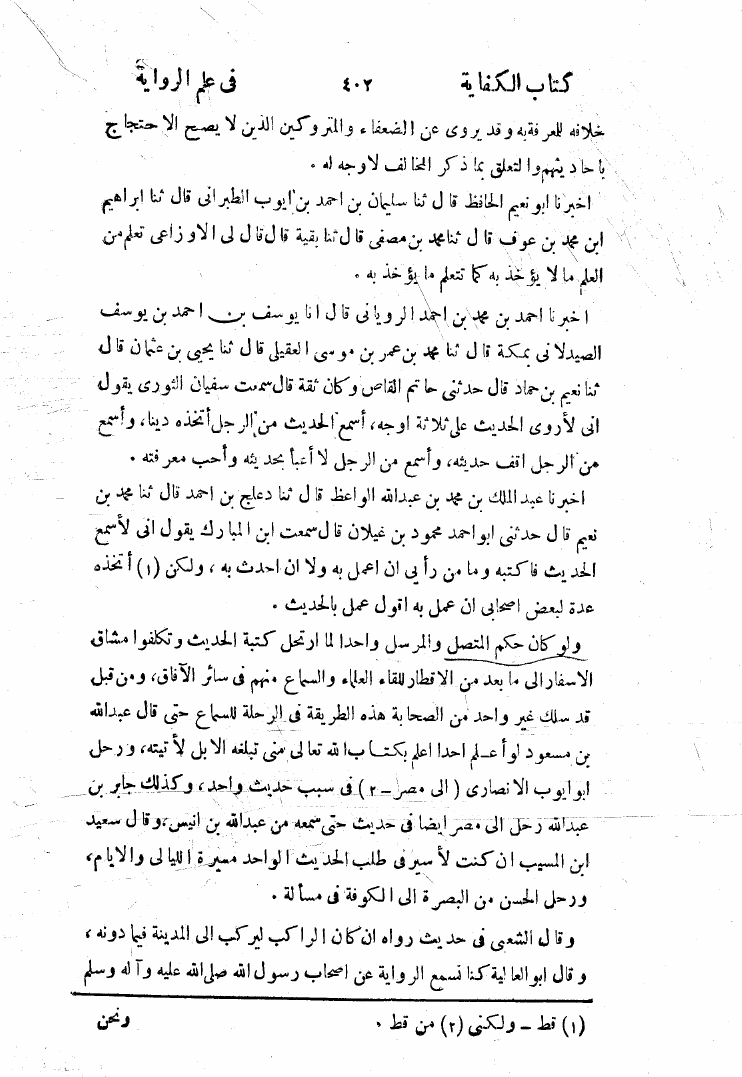 كتاب الكفاية ٤٠٢ فى علم الرواية
خلافه للعرفة به وقد يروى عن الضعفاء والمتروكين الذين لا يصح الاحتجاج
باحاديثهم والتعلق بما ذكر المخالف لا وجه له .
اخبرنا ابو نعيم الحافظ قال ثنا سليمان بن احمد بن ايوب الطبرانى قال ثنا ابراهيم
ابن محمد بن عوف قال ثنا محمد بن مصفى قال ثنا بقية قال قال لى الاوزاعى تعلم من
العلم ما لا يؤخذ به كما تتعلم ما يؤخذ به .
اخبرنا احمد بن محمد بن احمد الرويانى قال انا يوسف بن احمد بن يوسف
الصيدلانى بمكة قال ثنا محمد بن عمر بن موسى العقيلى قال ثنا يحيى بن عثمان قال
ثنا نعيم بن حماد قال حدثنى حاتم القاص وكان ثقة قال سمعت سفيان الثورى يقول
انى لأروى الحديث على ثلاثة اوجه، أسمع الحديث من الرجل أتخذه دينا، وأسمع
من الرجل اقف حديثه، وأسمع من الرجل لا أعبأ بحديثه وأحب معرفته .
اخبرنا عبد الملك بن محمد بن عبدالله الواعظ قال ثنا دعلج بن احمد قال ثنا محمد بن
نعيم قال حدثنى ابو احمد محمود بن غيلان قال سمعت ابن المبارك يقول انى لأسمع
الحديث فاكتبه وما من رأيى ان اعمل به ولا ان احدث به ، ولكن (١) أتخذه
عدة لبعض اصحابى ان عمل به اقول عمل بالحديث .
ولو كان حكم المتصل والمرسل واحدا لما ارتحل كتبة الحديث وتكلفوا مشاق
الاسفار الى ما بعد من الاقطار للقاء العلماء والسماع منهم فى سائر الآفاق، ومن قبل
قد سلك غير واحد من الصحابة هذه الطريقة فى الرحلة للسماع حتى قال عبدالله
بن مسعود لو أعلم احدا اعلم بكتاب الله تعالى منى تبلغه الابل لأتيته، ورحل
ابو ايوب الانصارى (الى مصر – ٢) فى سبب حديث واحد، وكذلك جابر بن
عبدالله رحل الى مصر ايضا فى حديث حتى سمعه من عبدالله بن انيس، وقال سعيد
ابن المسيب ان كنت لأسير فى طلب الحديث الواحد مسيرة الليالى والايام،
ورحل الحسن من البصرة الى الكوفة فى مسألة .
وقال الشعبى فى حديث رواه ان كان الراكب ليركب الى المدينة فيما دونه ،
وقال ابو العالية كنا نسمع الرواية عن اصحاب رسول الله صلى الله عليه وآله وسلم
(١) قط – ولكنى (٢) من قط . ونحن